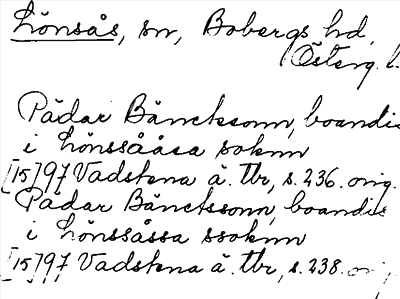 Lönsås, sn, Bobergs hd,
Österg. l.
Pädar Bäncktsonn, boandis
i Lönssååsa soknn
[15]97 Vadstena ä. tbr, s. 236. orig.
Pädar Bäncktssonn, boandis
i Lönssåssa ssoknn
[15]97 Vadstena ä. tbr, s. 238.